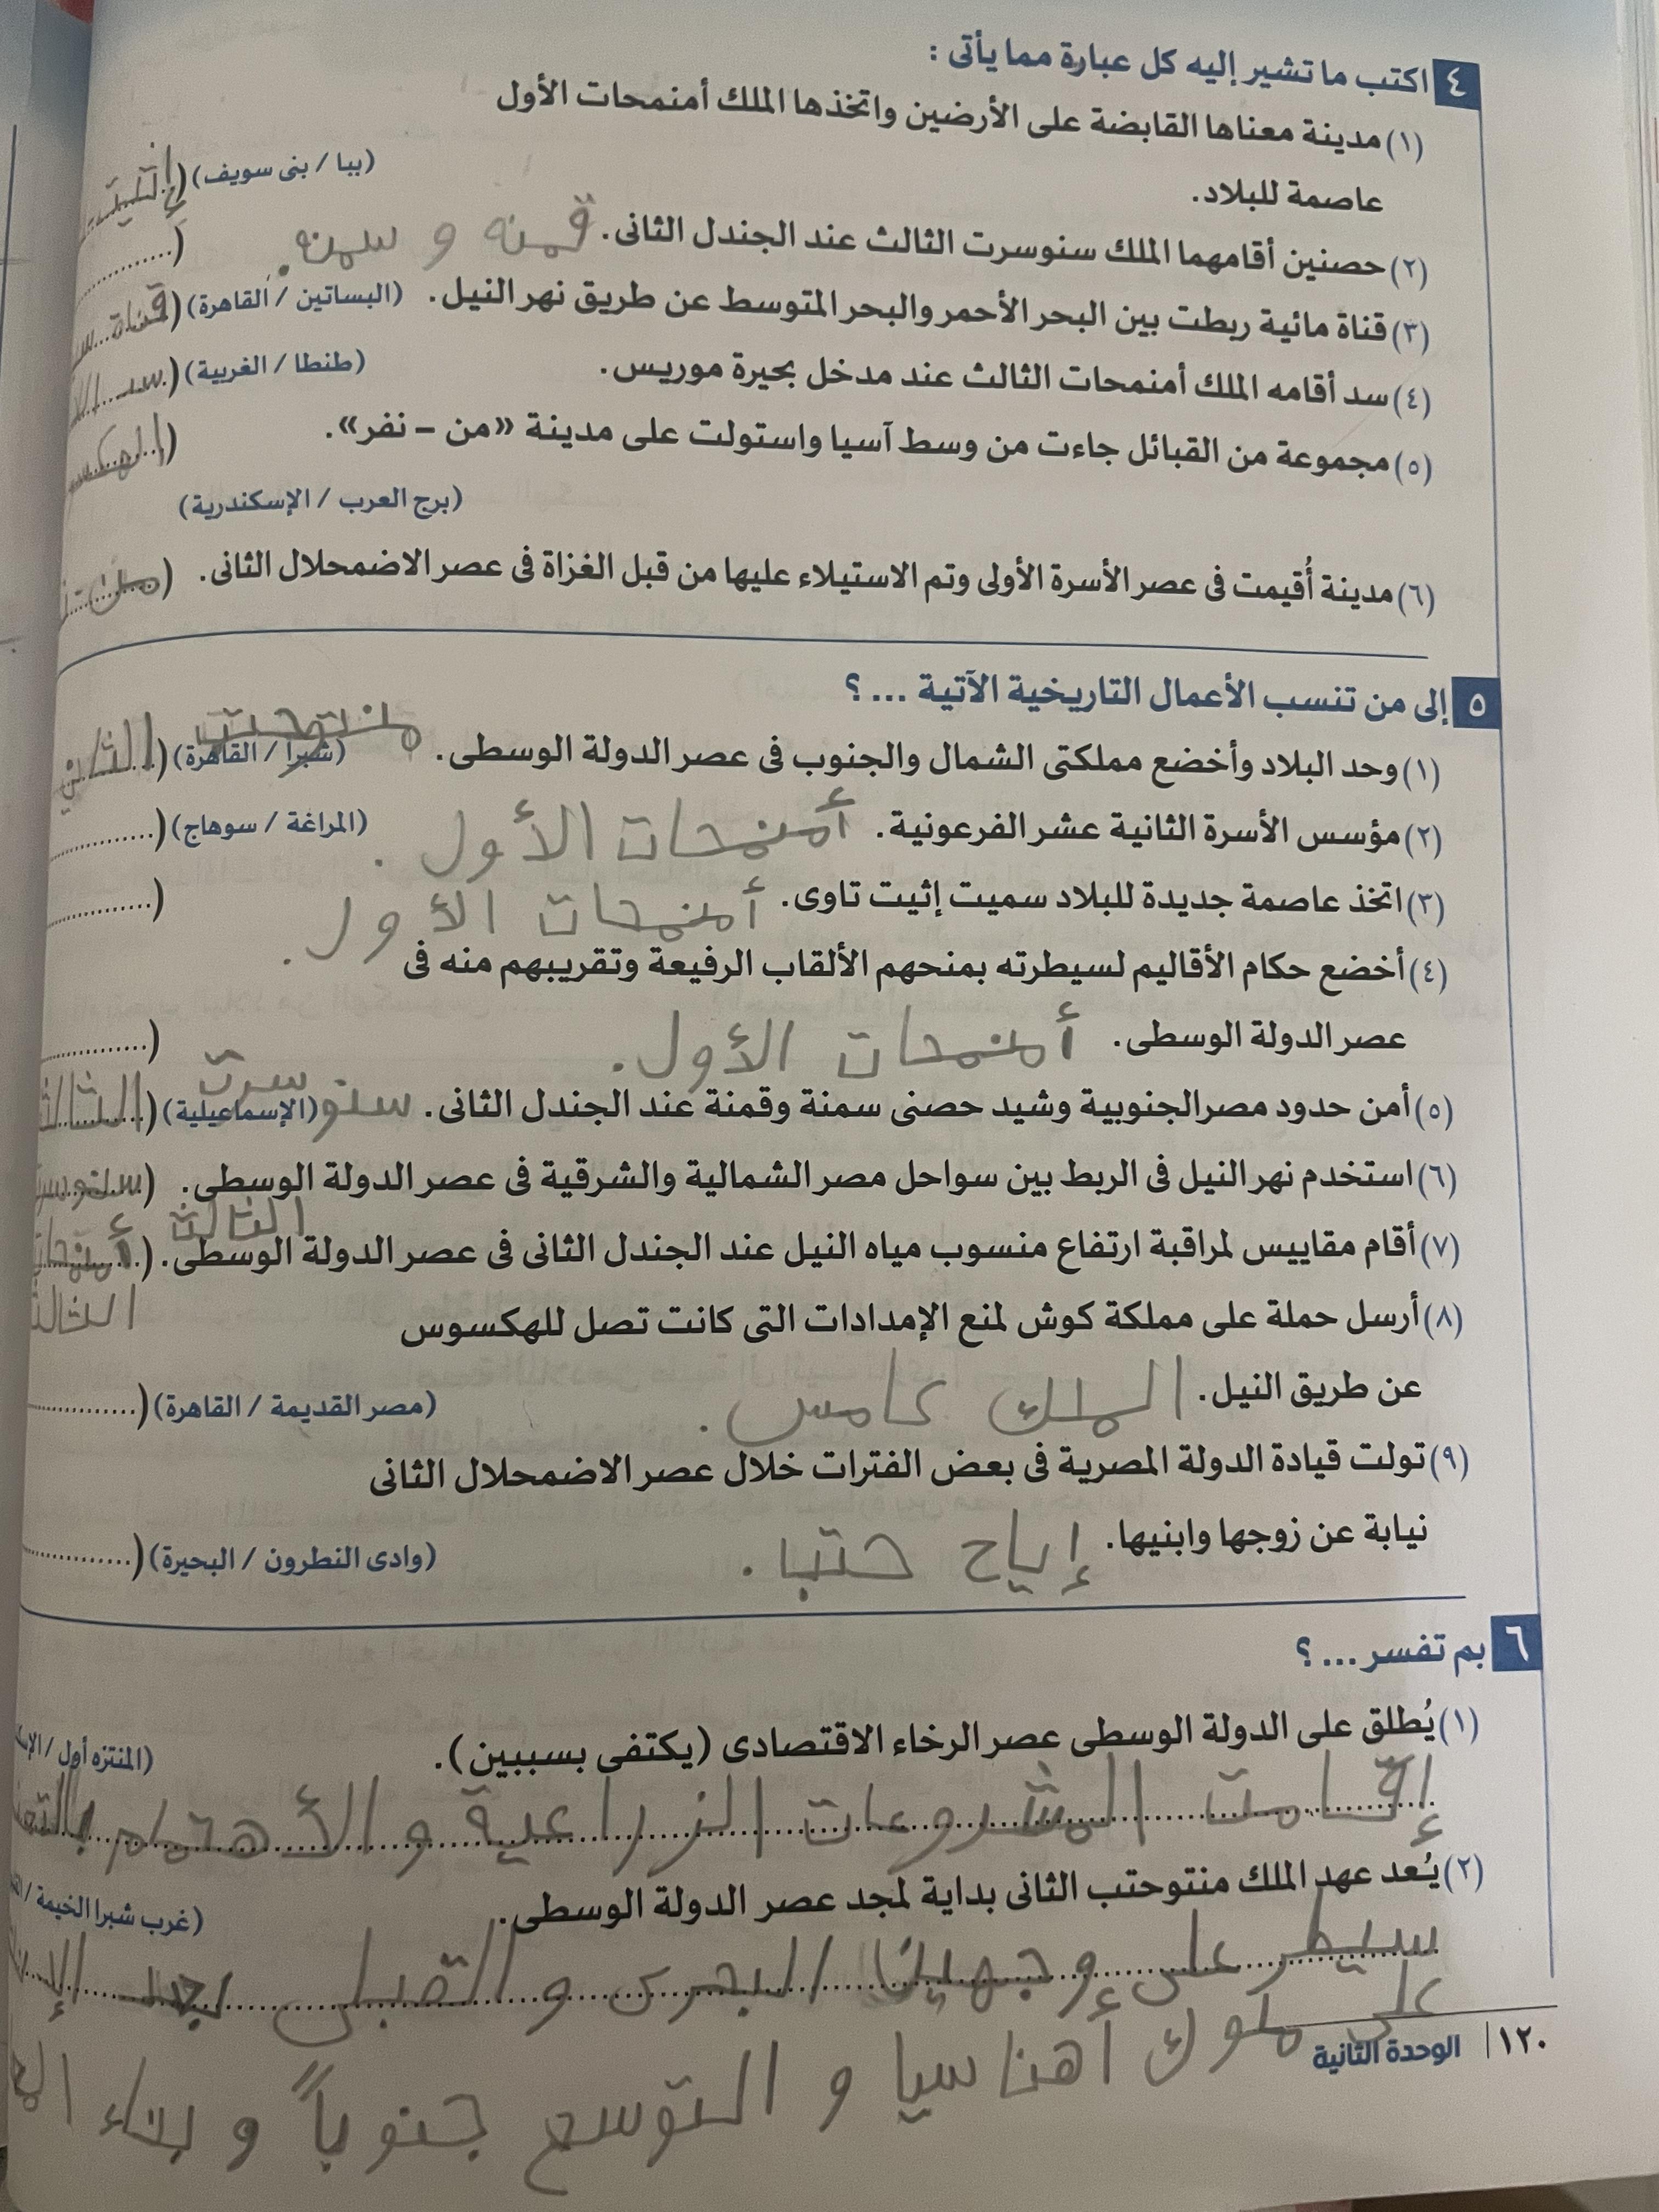 ٤ اكتب ما تشير إليه كل عبارة مما يأتى :
(١) مدينة معناها القابضة على الأرضين واتخذها الملك أمنمحات الأول
عاصمة للبلاد. (ببا / بنى سويف) (
(٢) حصنين أقامهما الملك سنوسرت الثالث عند الجندل الثانى. قمنه و سمنه. (
(٣) قناة مائية ربطت بين البحر الأحمر والبحر المتوسط عن طريق نهر النيل. (البساتين / القاهرة) (قناة
(٤) سد أقامه الملك أمنمحات الثالث عند مدخل بحيرة موريس. (طنطا / الغربية) (سد
(٥) مجموعة من القبائل جاءت من وسط آسيا واستولت على مدينة «من – نفر». (
(برج العرب / الإسكندرية)
(٦) مدينة أُقيمت فى عصر الأسرة الأولى وتم الاستيلاء عليها من قبل الغزاة فى عصر الاضمحلال الثانى. (من
٥ إلى من تنسب الأعمال التاريخية الآتية ... ؟
(١) وحد البلاد وأخضع مملكتى الشمال والجنوب فى عصر الدولة الوسطى. (شبرا / القاهرة) (الثاني
(٢) مؤسس الأسرة الثانية عشر الفرعونية. أمنمحات الأول. (المراغة / سوهاج) (
(٣) اتخذ عاصمة جديدة للبلاد سميت إثيت تاوى. أمنمحات الأول. (
(٤) أخضع حكام الأقاليم لسيطرته بمنحهم الألقاب الرفيعة وتقريبهم منه فى
عصر الدولة الوسطى. أمنمحات الأول. (
(٥) أمن حدود مصر الجنوبية وشيد حصنى سمنة وقمنة عند الجندل الثانى. سنوسرت (الإسماعيلية) (الثالث
(٦) استخدم نهر النيل فى الربط بين سواحل مصر الشمالية والشرقية فى عصر الدولة الوسطى. (
الثالث
(٧) أقام مقاييس لمراقبة ارتفاع منسوب مياه النيل عند الجندل الثانى فى عصر الدولة الوسطى. (أمنمحات
الثالث
(٨) أرسل حملة على مملكة كوش لمنع الإمدادات التى كانت تصل للهكسوس
عن طريق النيل. الملك كامس. (مصر القديمة / القاهرة) (
(٩) تولت قيادة الدولة المصرية فى بعض الفترات خلال عصر الاضمحلال الثانى
نيابة عن زوجها وابنيها. إياح حتبا. (وادى النطرون / البحيرة) (
٦ بم تفسر ... ؟
(١) يُطلق على الدولة الوسطى عصر الرخاء الاقتصادى (يكتفى بسببين). (المنتزه أول /
إقامت المشروعات الزراعية و الأهتمام
(٢) يُعد عهد الملك منتوحتب الثانى بداية لمجد عصر الدولة الوسطى. (غرب شبرا الخيمة /
سيطر على وجهين البحرى و القبلى بعد
على ملوك أهناسيا و التوسع جنوباً و بناء
١٢٠ | الوحدة الثانية